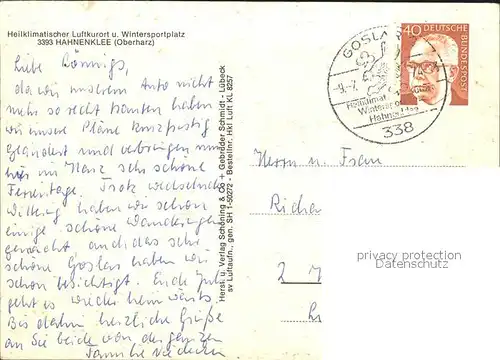 Heilklimatischer Luftkurort u. Wintersportplatz
3393 HAHNENKLEE (Oberharz)
Liebe
da wir unserem Auto nicht
mehr so recht trauten haben
wir unsere Pläne kurzfristig
geändert und verbringen nun
hier im Harz sehr schöne
Ferientage. Trotz
Witterung haben wir schon
einige schöne Wanderungen
gemacht und das sehr
schöne Goslar haben wir
schon besichtigt. Ende Juli
geht es wieder heimwärts.
Bis dahin herzliche Grüße
an Sie beide von der ganzen
Familie
Herst. u. Verlag Schöning & Co + Gebrüder Schmidt - Lübeck
sv Luftaufn., gen. SH 1-50272 - Bestellnr. Hkl Luft KL 8257
GOSLAR
-9.-7.
Heilklimat
Winterspo
Hahnenklee
338
40
DEUTSCHE
BUNDESPOST
Herrn u. Frau
Richa
2
privacy protection
Datenschutz